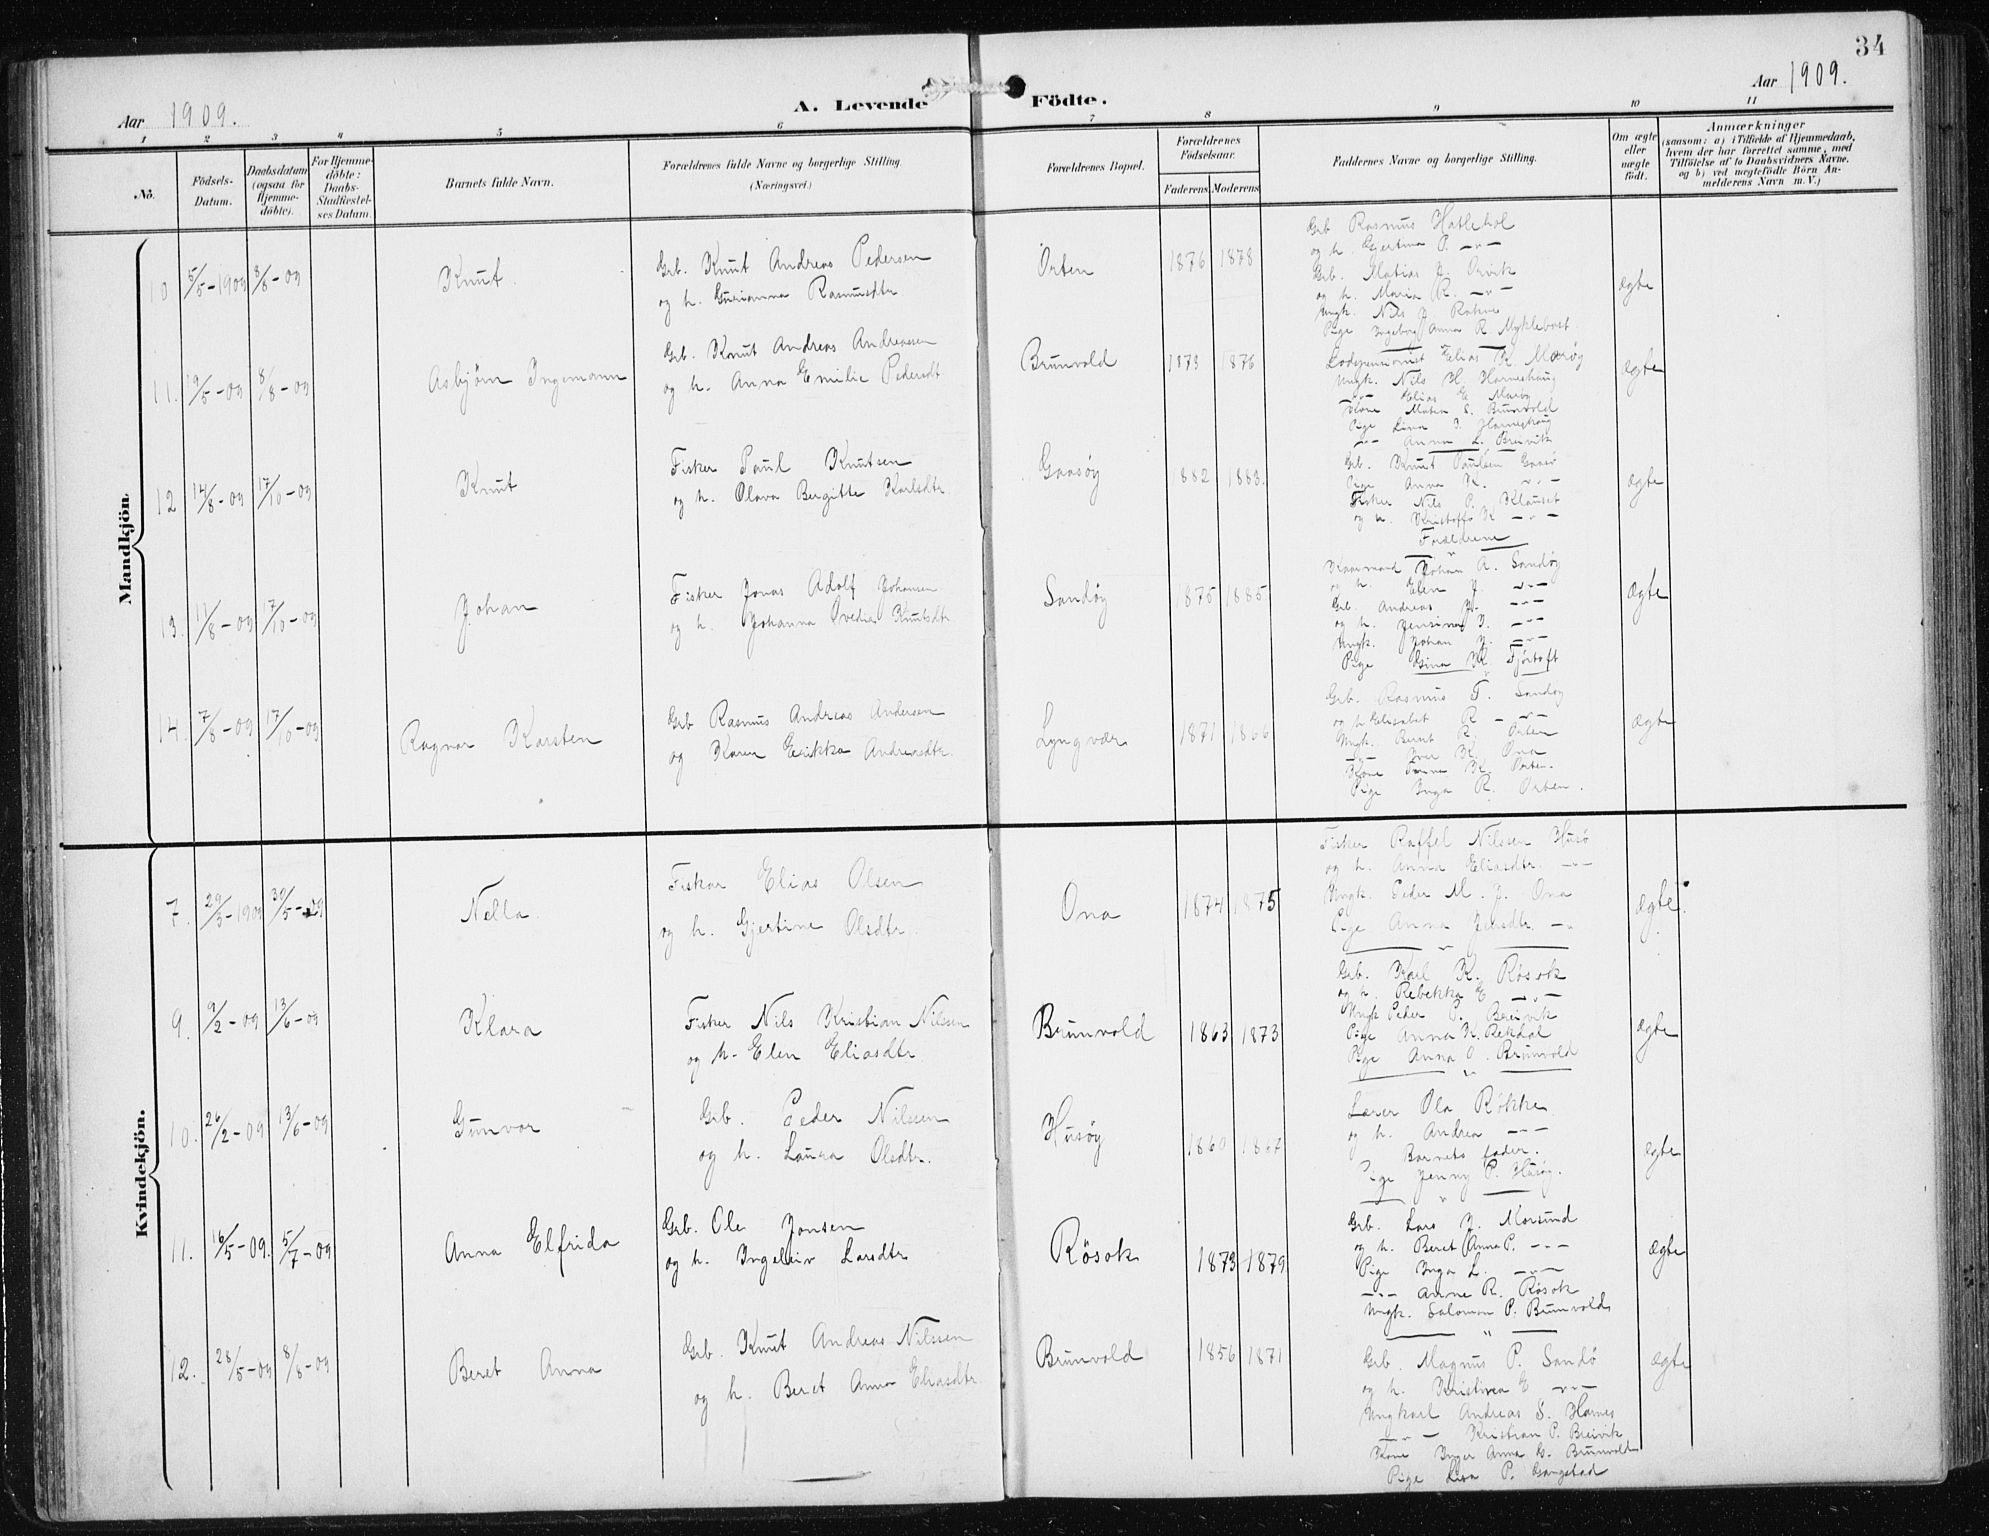 34
Aar 1909.
A. Levende Födte.
Aar 1909.
1 2 3 4 5 6 7 8 9 10 11
No.
Födsels-Datum.
Daabsdatum (ogsaa for Hjemme-döbte).
For Hjemme-döbte: Daabs-Stadfæstel-ses Datum.
Barnets fulde Navn.
Forældrenes fulde Navne og borgerlige Stilling. (Næringsvei.)
Forældrenes Bopæl.
Forældrenes Födselsaar.
Faderens. Moderens.
Faddernes Navne og borgerlige Stilling.
Om ægte eller uægte født.
Anmærkninger
(saasom: a) i Tilfælde af Hjemmedaab,
hvem der har forrettet samme, med
Tilföielse af to Daabsvidners Navne.
og b) ved uægtefödte Börn An-
melderens Navn m. V.)
Mandkjön.
10 5/5-1909 8/8-09 Knut.
Grb. Knut Andreas Pedersen
og h. Gurianna Rasmusdtr
Orten 1876 1878
Grb Rasmus Hatlehol
og h. Gjertina P. -"-
Grb. Matias J. Orvik
og h. Maria R. -"-
Ungk. Nils J. Røkne
Pige Ingeborg Anna R Myklebost
ægte
11. 19/5-09 8/8-09 Asbjørn Ingemann
Grb. Knut Andreas Andreassen
og h. Anna Emilie Pedersdt
Brunvold 1873 1876
Lodspensionist Elias K. Marøy
Ungk. Nils H. Harneshaug
-"- Elias E. Marøy
Kone Matea S. Brunvold
Pige Lina J. Harneshaug
-"- Anna L. Breivik
ægte
12 14/8-09 17/10-09 Knut
Fisker Paul Knutsen
og h. Olava Bergitte Karlsdtr.
Gaasøy 1882 1883.
Grb. Knut Paulsen Gaasø
Pige Anna K. -"-
Fisker Nils P. Klauset
og h. Kristoffa K -"-
Forældrene
ægte
13. 11/8-09 17/10-09 Johan
Fisker Jonas Adolf Johansen
og h. Johanna Ovedia Knutsdtr
Sandøy 1875 1885
Kaarmand Johan A. Sandøy
og h. Elen J. -"-
Grb. Andreas J. -"-
og h. Jensina J. -"-
Ungk. Johan J. -"-
Pige Gina K. Fjørtoft
ægte
14. 7/8-09 17/10-09 Ragnar Karsten
Grb Rasmus Andreas Andersen
og Karen Erikka Andreasdtr.
Lyngvær 1871 1866
Grb. Rasmus T. Sandøy
og h Elisabet R -"-
Ungk. Bernt R. Orten
-"- Iver K. Ona
Kone Anna K. Orten.
Pige Inga R. Orten.
ægte
Kvindekjön.
7. 29/3-1909 30/5-09 Nella.
Fisker Elias Olsen
og h. Gjertine Olsdtr.
Ona 1874 1875
Fisker Raffel Nilssen Husø
og h. Anna Eliasdtr. -"-
Ungk. Peder M. J. Ona
Pige Anna Jensdtr. -"-
ægte.
9. 9/2-09 13/6-09 Klara
Fisker Nils Kristian Nilssen
og h. Elen Eliasdtr.
Brunvold 1863 1873
Grb. Karl K. Røsok
og h. Rebekka E -"-
Ungk. Peder P. Breivik
Pige Anna K. Rekdal
Pige Anna O. Brunvold
ægte
10. 26/2-09 13/6-09 Gunvor
Grb. Peder Nilssen
og h. Laura Olsdtr.
Husøy 1860 1867
Lærer Ola Røkke
og h. Andrea -"-
Barnets fader.
Pige Jenny P. Husøy.
ægte
11. 16/5-09. 5/7-09 Anna Elfrida
Grb. Ole Jonsen
og h. Ingeleiv Larsdtr
Røsok 1873 1879
Grb. Lars J. Morsund
og h. Beret Anna P. -"-
Pige Inga L. -"-
-"- Anne R. Røsok
Ungk. Salomon P. Brunvold
ægte
12. 28/5-09 8/8-09 Beret Anna
Grb. Knut Andreas Nilssen
og h. Beret Anna Eliasdtr.
Brunvold 1856 1871
Grb. Magnus P. Sandø
og h. Kristina E -"-
Ungkarl Andreas S. Harnes
-"- Kristian P. Breivik
Kone Inger Anna G. Brunvold
Pige Lisa P. Gangstad
ægte